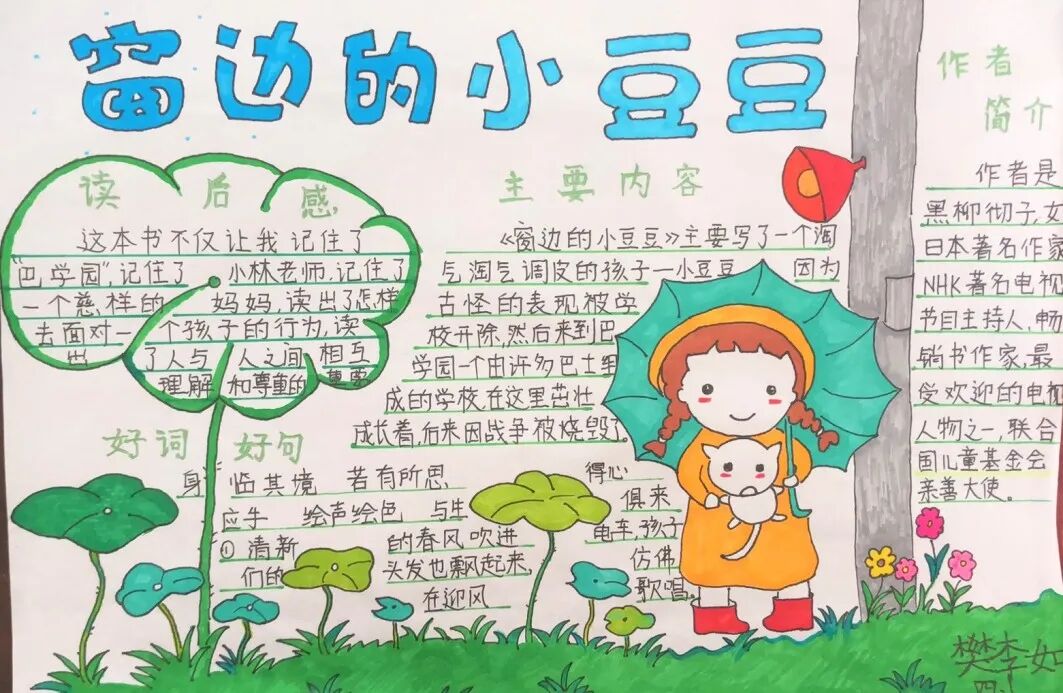 窗边的小豆豆
读后感
这本书不仅让我记住了
“巴学园”,记住了 小林老师,记住了
一个慈样的 妈妈,读出了怎样
去面对一 个孩子的行为,读
出 了人与 人之间 相互
理解 和尊重的 重要
主要内容
《窗边的小豆豆》主要写了一个淘
气淘气调皮的孩子一小豆豆 因为
古怪的表现被学
校开除,然后来到巴
学园一个由许多巴士组
成的学校,在这里茁壮
成长着,后来因战争被烧毁了。
好词 好句
身 临其境 若有所思 得心
应手 绘声绘色 与生 俱来
①清新 的春风,吹进 电车,孩子
们的 头发也飘起来, 仿佛
在迎风 歌唱。
作者
简介
作者是
黑柳彻子,女
日本著名作家
NHK著名电视
节目主持人,畅
销书作家,最
受欢迎的电视
人物之一,联合
国儿童基金会
亲善大使。
樊李
四